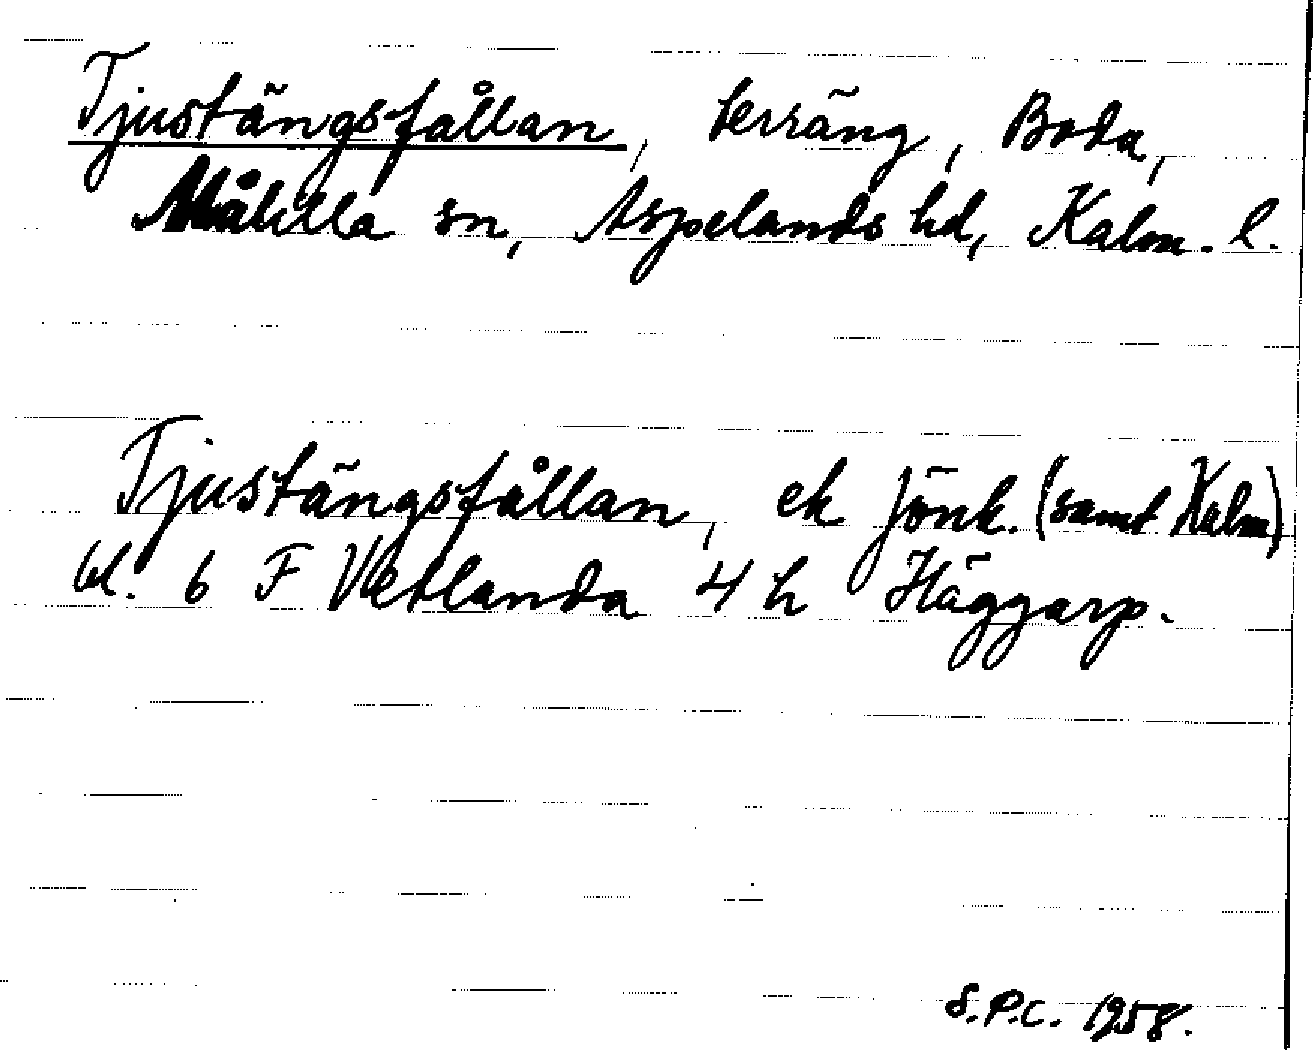 Tjustängsfållan, terräng, Boda,
Målilla sn, Aspelands hd, Kalm. l.
Tjustängsfållan, ek Jönk. (samt Kalm)
bl. 6 F Vetlanda 4 h Häggarp.
S.P.C. 1958.